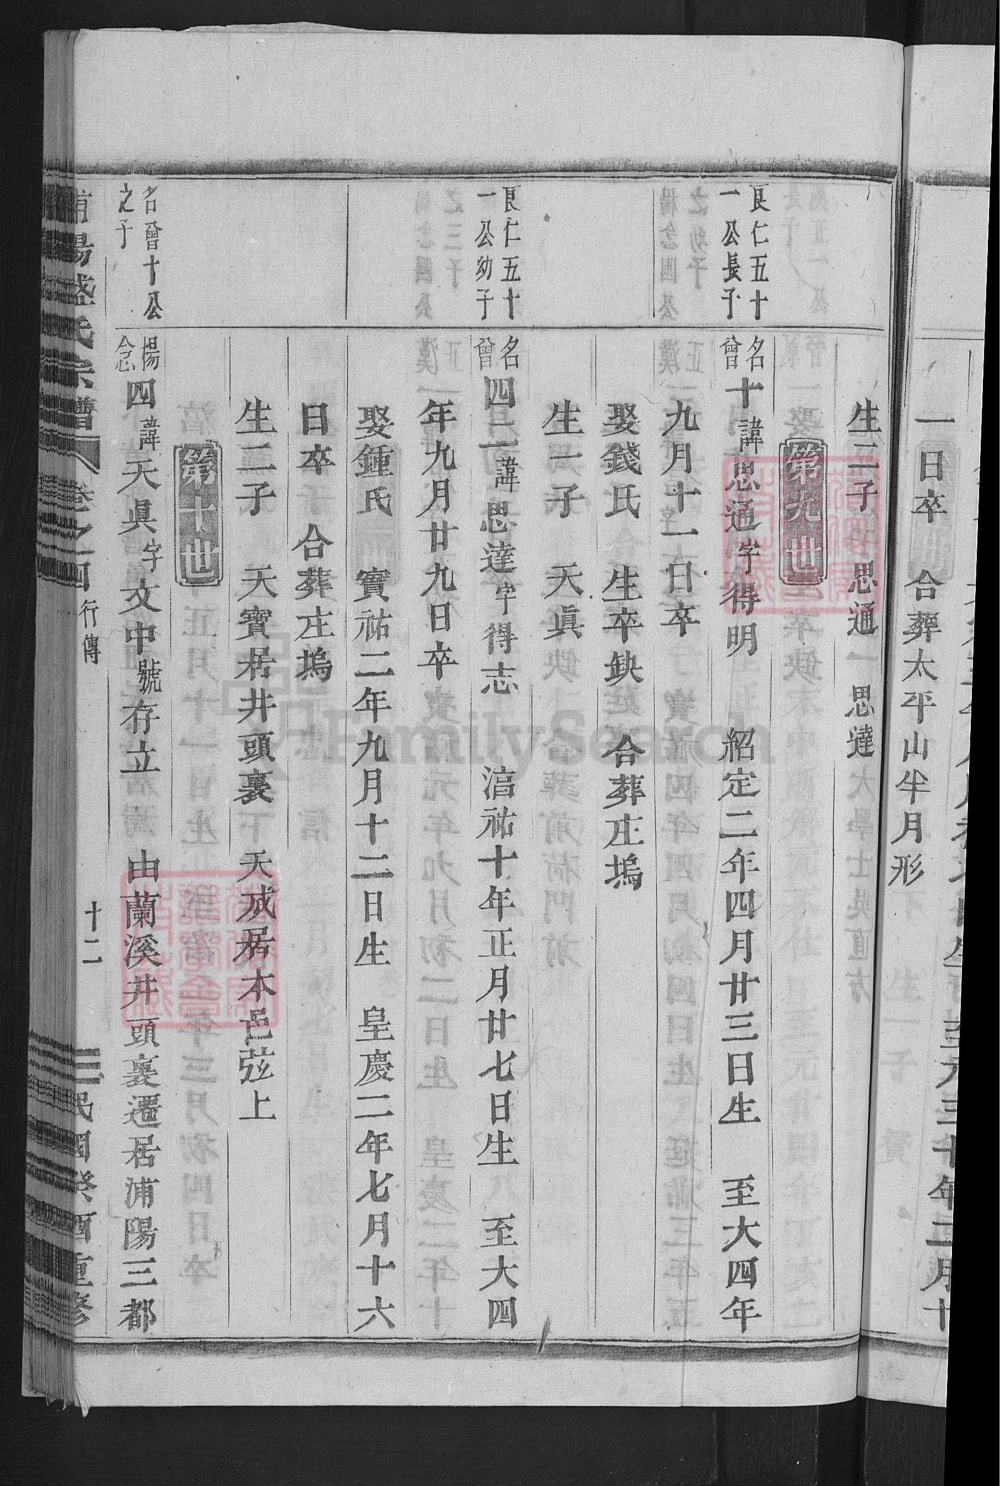 一日卒 合葬太平山半月形
生二子 思通 思達
第九世
良仁五十
一公長子
名曾十 諱思通 字得明 紹定二年四月廿三日生 至大四年
九月十一日卒
娶錢氏 生卒缺 合葬庄塢
生一子 天眞
良仁五十
一公幼子
名曾四二 諱思達 字得志 淳祐十年正月廿七日生 至大四
年九月廿九日卒
娶鍾氏 寳祐二年九月十二日生 皇慶二年七月十六
日卒 合葬庄塢
生二子 天寳居井頭裏 天成居本邑弦上
第十世
名曾十公
之子
楊念四 諱天眞 字文中 號存立 由蘭溪井頭裏遷居浦陽三都
浦陽盛氏宗譜 卷之四 行傳 十二 民國癸酉重修
FamilySearch